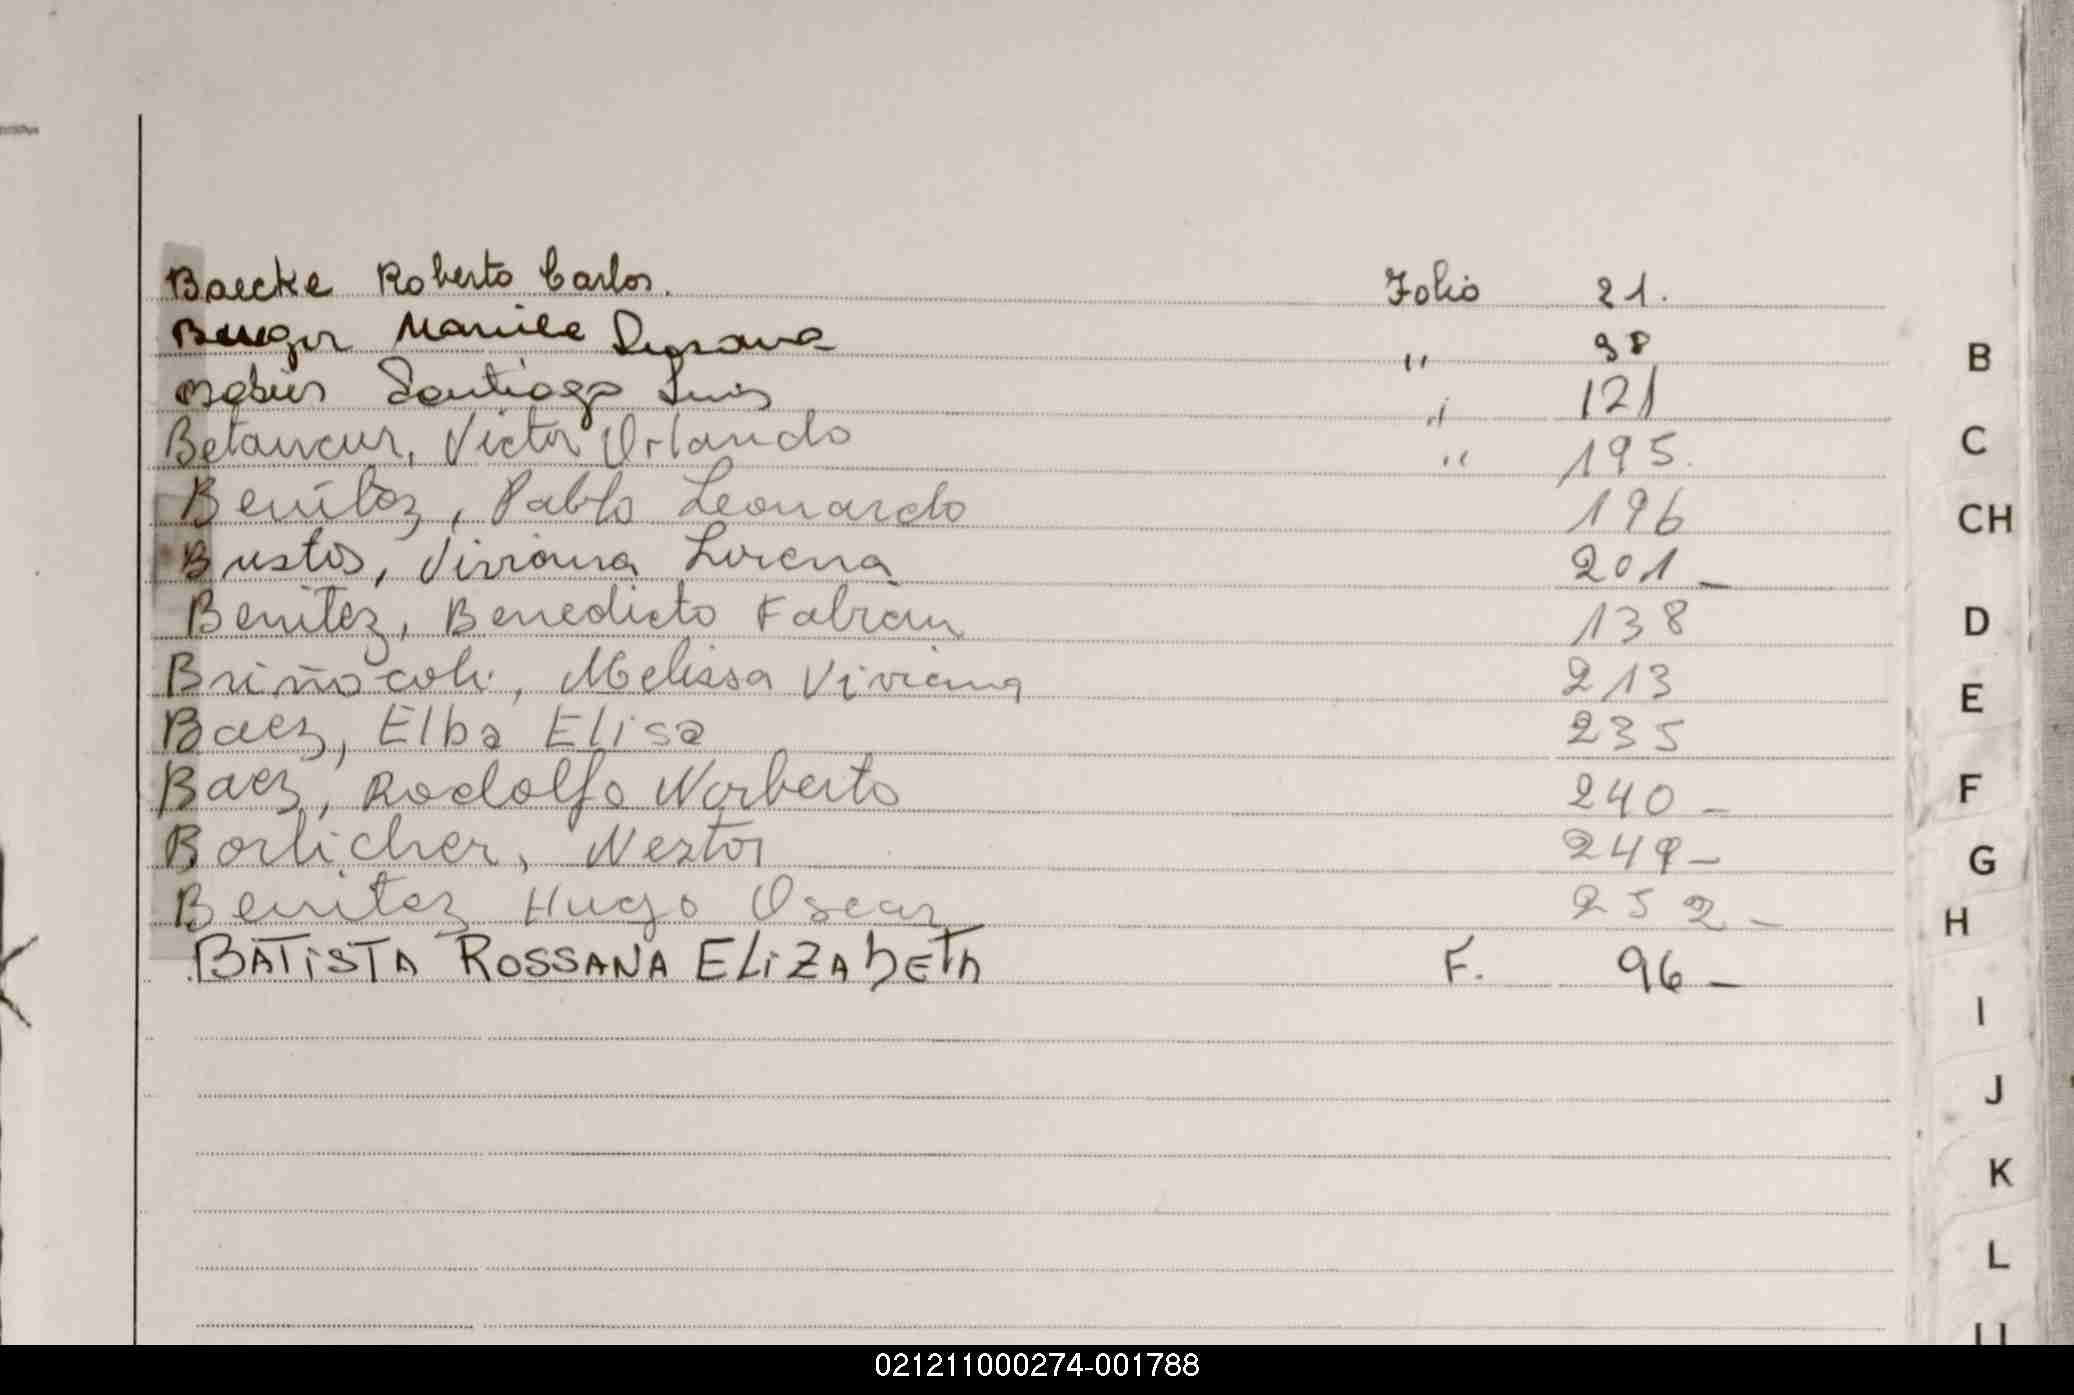 Baecke Roberto Carlos. Folio 21.
Susana " 98
Santiago Luis " 121
Betancur, Victor Orlando " 195.
Benitez, Pablo Leonardo 196
Bustos, Viviana Lorena 201 _
Benitez, Benedicto Fabian 138
Briñocoli, Melissa Viviana 213
Baez, Elba Elisa 235
Baez, Rodolfo Norberto 240 _
Borlicher, Nestor 249 _
Benitez Hugo Oscar 252 _
BATISTA ROSSANA ELIZABETH F. 96 _
B
C
CH
D
E
F
G
H
I
J
K
L
021211000274-001788